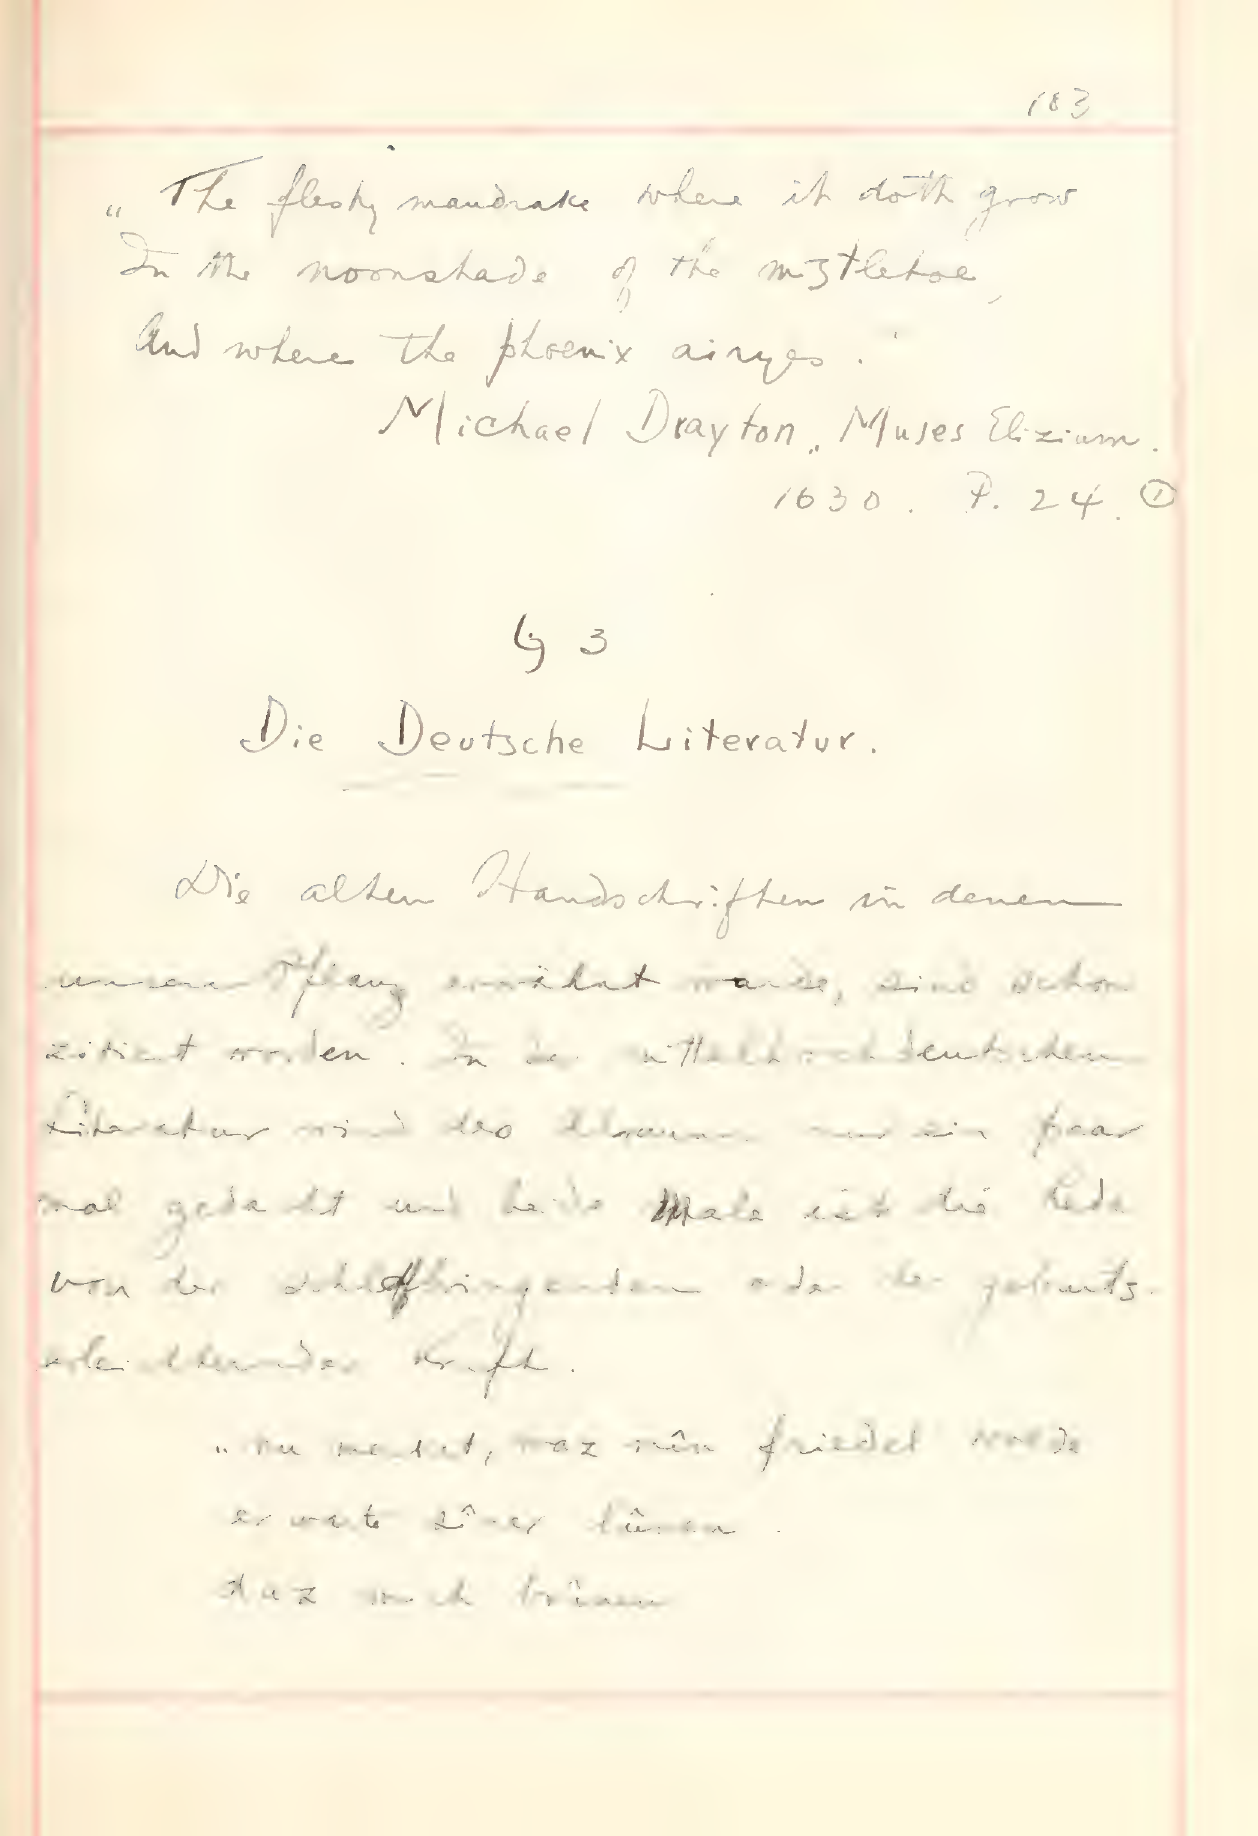 183
„The fleshy mandrake where it doth grow
In the noonshade of the mistletoe,
And where the phoenix airyes."
Michael Drayton, Muses Elizium.
1630. P. 24. ①
§ 3
Die Deutsche Literatur.
Die alten Handschriften in denen
unsere Pflanz erwähnt wurde, sind schon
zitiert worden. In der mittelhochdeutschen
Literatur wird des Alraunen nur ein paar
mal gedacht und beide Male ist die Rede
von der schlafbringenden oder der geburts-
erleichternden Kraft.
„nu merket, waz mîn friedel
er
daz mich